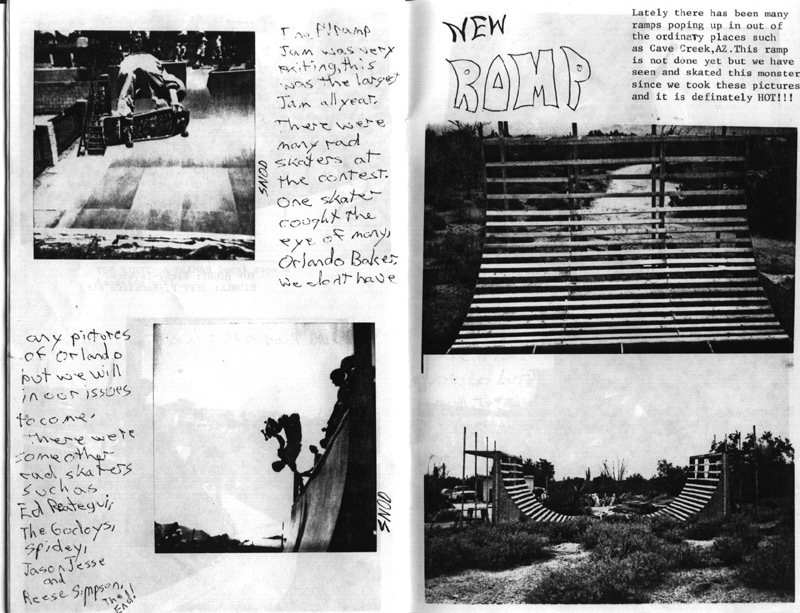 The ramp
Jam was very
exiting, this
was the largest
Jam all year.
There were
many rad
skaters at
the contest.
One skater
cought the
eye of many,
Orlando Baker,
we don't have
SNOD
any pictures
of Orlando
but we will
in our issues
to come.
There were
some other
rad skaters
such as
Ed Reategui,
The Godoys,
Spidey,
Jason Jesse
and
Reese Simpson.
The
End!
SNOD
NEW
RAMP
Lately there has been many
ramps poping up in out of
the ordinary places such
as Cave Creek,AZ.This ramp
is not done yet but we have
seen and skated this monster
since we took these pictures
and it is definately HOT!!!